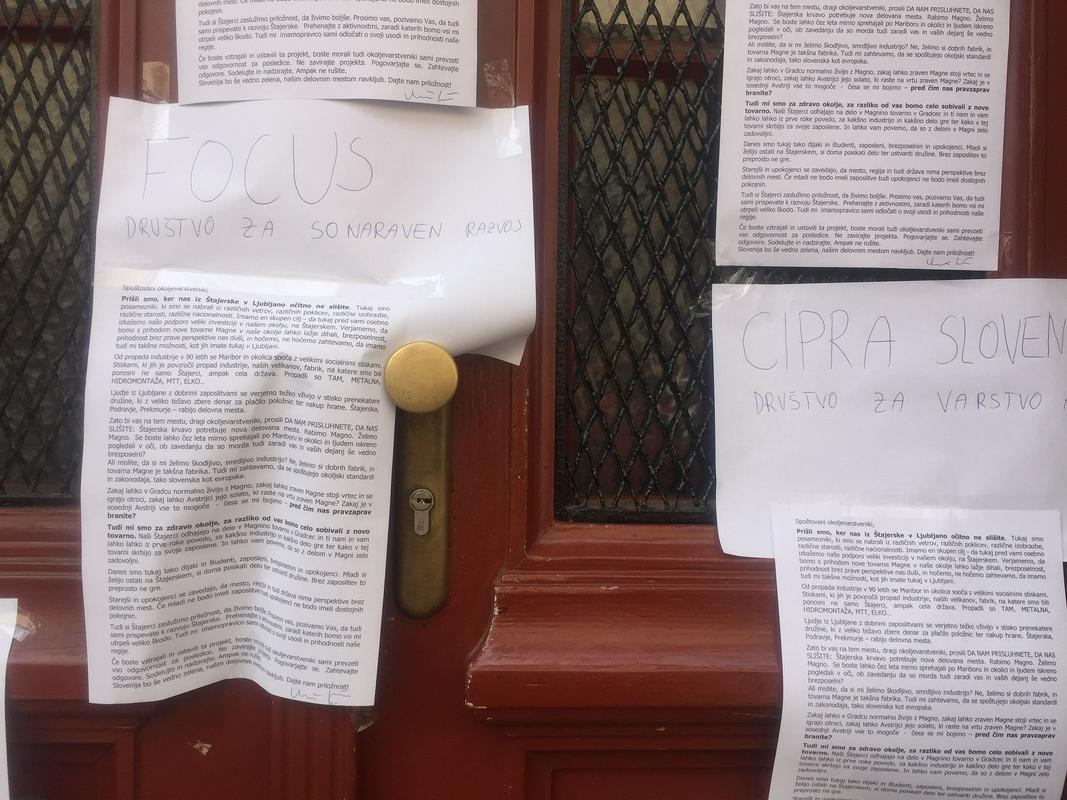 delovnih mest. Če mladi ne bodo imeli zaposlitve tudi upokojenci ne bodo imeli dostojnih
pokojnin.
Tudi si Štajerci zaslužimo priložnost, da živimo boljše. Prosimo vas, pozivamo Vas, da tudi
sami prispevate k razvoju Štajerske. Prenehajte z aktivnostmi, zaradi katerih bomo vsi mi
utrpeli veliko škodo. Tudi mi imamo pravico sami odločati o svoji usodi in prihodnosti naše
regije.
Če boste vztrajali in ustavili ta projekt, boste morali tudi okoljevarstveniki sami prevzeti
vso odgovornost za posledice. Ne zavirajte projekta. Pogovarjajte se. Zahtevajte
odgovore. Sodelujte in nadzirajte. Ampak ne rušite.
Slovenija bo še vedno zelena, našim delovnim mestom navkljub. Dajte nam priložnost!
FOCUS
DRUŠTVO ZA SONARAVEN RAZVOJ
Spoštovani okoljevarstveniki,
Prišli smo, ker nas iz Štajerske v Ljubljano očitno ne slišite. Tukaj smo
posamezniki, ki smo se nabrali iz različnih vetrov, različnih poklicev, različne izobrazbe,
različne starosti, različne nacionalnosti. Imamo en skupen cilj – da tukaj pred vami osebno
izkažemo našo podporo veliki investiciji v našem okolju, na Štajerskem. Verjamemo, da
bomo s prihodom nove tovarne Magne v naše okolje lahko lažje dihali, brezposelnost,
prihodnost brez prave perspektive nas duši, in hočemo, ne hočemo zahtevamo, da imamo
tudi mi takšne možnosti, kot jih imate tukaj v Ljubljani.
Od propada industrije v 90 letih se Maribor in okolica sooča z velikimi socialnimi stiskami.
Stiskami, ki jih je povzročil propad industrije, naših velikanov, fabrik, na katere smo bili
ponosni ne samo Štajerci, ampak cela država. Propadli so TAM, METALNA,
HIDROMONTAŽA, MTT, ELKO...
Ljudje iz Ljubljane z dobrimi zaposlitvami se verjetno težko vživijo v stisko prenekatere
družine, ki z veliko težavo zbere denar za plačilo položnic ter nakup hrane. Štajerska,
Podravje, Prekmurje – rabijo delovna mesta.
Zato bi vas na tem mestu, dragi okoljevarstveniki, prosili DA NAM PRISLUHNETE, DA NAS
SLIŠITE: Štajerska krvavo potrebuje nova delovana mesta. Rabimo Magno. Želimo
Magno. Se boste lahko čez leta mirno sprehajali po Mariboru in okolici in ljudem iskreno
pogledali v oči, ob zavedanju da so morda tudi zaradi vas in vaših dejanj še vedno
brezposelni?
Ali mislite, da si mi želimo škodljivo, smrdljivo industrijo? Ne, želimo si dobrih fabrik, in
tovarna Magne je takšna fabrika. Tudi mi zahtevamo, da se spoštujejo okoljski standardi
in zakonodaja, tako slovenska kot evropska.
Zakaj lahko v Gradcu normalno živijo z Magno, zakaj lahko zraven Magne stoji vrtec in se
igrajo otroci, zakaj lahko Avstrijci jejo solato, ki raste na vrtu zraven Magne? Zakaj je v
sosednji Avstriji vse to mogoče - česa se mi bojimo – pred čim nas pravzaprav
branite?
Tudi mi smo za zdravo okolje, za razliko od vas bomo celo sobivali z novo
tovarno. Naši Štajerci odhajajo na delo v Magnino tovarno v Gradcec in ti nam in vam
lahko lahko iz prve roke povedo, za kakšno industrijo in kakšno delo gre ter kako v tej
tovarni skrbijo za svoje zaposlene. In lahko vam povemo, da so z delom v Magni zelo
zadovoljni.
Danes smo tukaj tako dijaki in študenti, zaposleni, brezposelni in upokojenci. Mladi si
želijo ostati na Štajerskem, si doma poiskati delo ter ustvariti družine. Brez zaposlitev to
preprosto ne gre.
Starejši in upokojenci se zavedajo, da mesto, regija in tudi država nima perspektive brez
delovnih mest. Če mladi ne bodo imeli zaposlitve tudi upokojenci ne bodo imeli dostojnih
pokojnin.
Tudi si Štajerci zaslužimo priložnost, da živimo boljše. Prosimo vas, pozivamo Vas, da tudi
sami prispevate k razvoju Štajerske. Prenehajte z aktivnostmi, zaradi katerih bomo vsi mi
utrpeli veliko škodo. Tudi mi imamo pravico sami odločati o svoji usodi in prihodnosti naše
regije.
Če boste vztrajali in ustavili ta projekt, boste morali tudi okoljevarstveniki sami prevzeti
vso odgovornost za posledice. Ne zavirajte projekta. Pogovarjajte se. Zahtevajte
odgovore. Sodelujte in nadzirajte. Ampak ne rušite.
Slovenija bo še vedno zelena, našim delovnim mestom navkljub. Dajte nam priložnost!
Zato bi vas na tem mestu, dragi okoljevarstveniki, prosili DA NAM PRISLUHNETE, DA NAS
SLIŠITE: Štajerska krvavo potrebuje nova delovana mesta. Rabimo Magno. Želimo
Magno. Se boste lahko čez leta mirno sprehajali po Mariboru in okolici in ljudem iskreno
pogledali v oči, ob zavedanju da so morda tudi zaradi vas in vaših dejanj še vedno
brezposelni?
Ali mislite, da si mi želimo škodljivo, smrdljivo industrijo? Ne, želimo si dobrih fabrik, in
tovarna Magne je takšna fabrika. Tudi mi zahtevamo, da se spoštujejo okoljski standardi
in zakonodaja, tako slovenska kot evropska.
Zakaj lahko v Gradcu normalno živijo z Magno, zakaj lahko zraven Magne stoji vrtec in se
igrajo otroci, zakaj lahko Avstrijci jejo solato, ki raste na vrtu zraven Magne? Zakaj je v
sosednji Avstriji vse to mogoče - česa se mi bojimo – pred čim nas pravzaprav
branite?
Tudi mi smo za zdravo okolje, za razliko od vas bomo celo sobivali z novo
tovarno. Naši Štajerci odhajajo na delo v Magnino tovarno v Gradcec in ti nam in vam
lahko lahko iz prve roke povedo, za kakšno industrijo in kakšno delo gre ter kako v tej
tovarni skrbijo za svoje zaposlene. In lahko vam povemo, da so z delom v Magni zelo
zadovoljni.
Danes smo tukaj tako dijaki in študenti, zaposleni, brezposelni in upokojenci. Mladi si
želijo ostati na Štajerskem, si doma poiskati delo ter ustvariti družine. Brez zaposlitev to
preprosto ne gre.
Starejši in upokojenci se zavedajo, da mesto, regija in tudi država nima perspektive brez
delovnih mest. Če mladi ne bodo imeli zaposlitve tudi upokojenci ne bodo imeli dostojnih
pokojnin.
Tudi si Štajerci zaslužimo priložnost, da živimo boljše. Prosimo vas, pozivamo Vas, da tudi
sami prispevate k razvoju Štajerske. Prenehajte z aktivnostmi, zaradi katerih bomo vsi mi
utrpeli veliko škodo. Tudi mi imamo pravico sami odločati o svoji usodi in prihodnosti naše
regije.
Če boste vztrajali in ustavili ta projekt, boste morali tudi okoljevarstveniki sami prevzeti
vso odgovornost za posledice. Ne zavirajte projekta. Pogovarjajte se. Zahtevajte
odgovore. Sodelujte in nadzirajte. Ampak ne rušite.
Slovenija bo še vedno zelena, našim delovnim mestom navkljub. Dajte nam priložnost!
CIPRA SLOVEN
DRUŠTVO ZA VARSTVO
Spoštovani okoljevarstveniki,
Prišli smo, ker nas iz Štajerske v Ljubljano očitno ne slišite. Tukaj smo
posamezniki, ki smo se nabrali iz različnih vetrov, različnih poklicev, različne izobrazbe,
različne starosti, različne nacionalnosti. Imamo en skupen cilj – da tukaj pred vami osebno
izkažemo našo podporo veliki investiciji v našem okolju, na Štajerskem. Verjamemo, da
bomo s prihodom nove tovarne Magne v naše okolje lahko lažje dihali, brezposelnost,
prihodnost brez prave perspektive nas duši, in hočemo, ne hočemo zahtevamo, da imamo
tudi mi takšne možnosti, kot jih imate tukaj v Ljubljani.
Od propada industrije v 90 letih se Maribor in okolica sooča z velikimi socialnimi stiskami.
Stiskami, ki jih je povzročil propad industrije, naših velikanov, fabrik, na katere smo bili
ponosni ne samo Štajerci, ampak cela država. Propadli so TAM, METALNA,
HIDROMONTAŽA, MTT, ELKO...
Ljudje iz Ljubljane z dobrimi zaposlitvami se verjetno težko vživijo v stisko prenekatere
družine, ki z veliko težavo zbere denar za plačilo položnic ter nakup hrane. Štajerska,
Podravje, Prekmurje – rabijo delovna mesta.
Zato bi vas na tem mestu, dragi okoljevarstveniki, prosili DA NAM PRISLUHNETE, DA NAS
SLIŠITE: Štajerska krvavo potrebuje nova delovana mesta. Rabimo Magno. Želimo
Magno. Se boste lahko čez leta mirno sprehajali po Mariboru in okolici in ljudem iskreno
pogledali v oči, ob zavedanju da so morda tudi zaradi vas in vaših dejanj še vedno
brezposelni?
Ali mislite, da si mi želimo škodljivo, smrdljivo industrijo? Ne, želimo si dobrih fabrik, in
tovarna Magne je takšna fabrika. Tudi mi zahtevamo, da se spoštujejo okoljski standardi
in zakonodaja, tako slovenska kot evropska.
Zakaj lahko v Gradcu normalno živijo z Magno, zakaj lahko zraven Magne stoji vrtec in se
igrajo otroci, zakaj lahko Avstrijci jejo solato, ki raste na vrtu zraven Magne? Zakaj je v
sosednji Avstriji vse to mogoče - česa se mi bojimo – pred čim nas pravzaprav
branite?
Tudi mi smo za zdravo okolje, za razliko od vas bomo celo sobivali z novo
tovarno. Naši Štajerci odhajajo na delo v Magnino tovarno v Gradcec in ti nam in vam
lahko lahko iz prve roke povedo, za kakšno industrijo in kakšno delo gre ter kako v tej
tovarni skrbijo za svoje zaposlene. In lahko vam povemo, da so z delom v Magni zelo
zadovoljni.
Danes smo tukaj tako dijaki in študenti, zaposleni, brezposelni in upokojenci. Mladi si
želijo ostati na Štajerskem, si doma poiskati delo ter ustvariti družine. Brez zaposlitev to
preprosto ne gre.